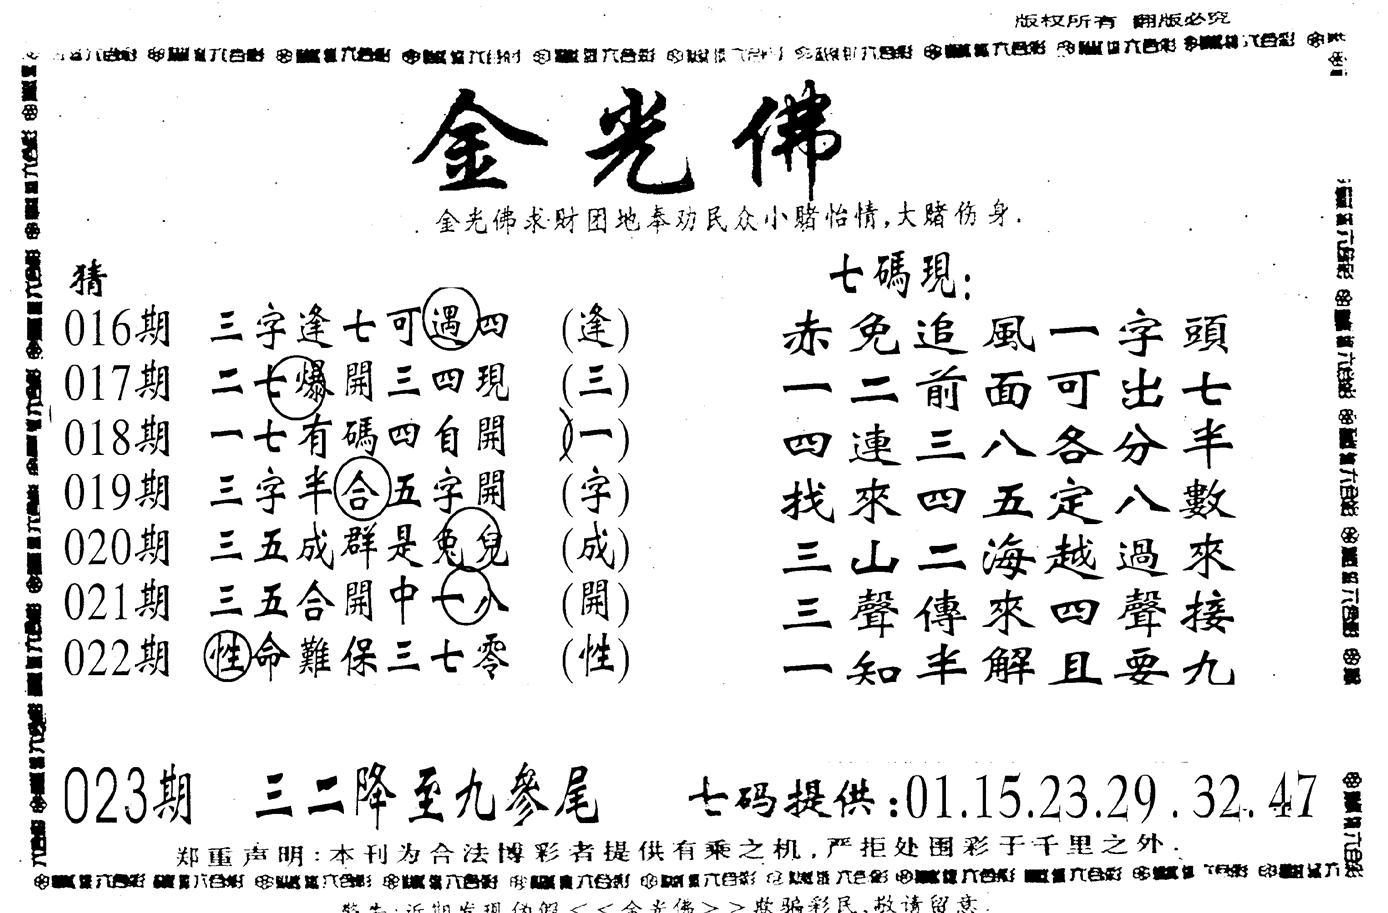 版权所有 翻版必究
金光佛
金光佛求财团地奉劝民众小赌怡情,大赌伤身.
猜
016期 三字逢七可遇四 (逢)
017期 二七爆開三四現 (三)
018期 一七有碼四自開 (一)
019期 三字半合五字開 (字)
020期 三五成群是兔兒 (成)
021期 三五合開中一八 (開)
022期 性命難保三七零 (性)
七碼現:
赤免追風一字頭
一二前面可出七
四連三八各分半
找來四五定八數
三山二海越過來
三聲傳來四聲接
一知半解且要九
023期 三二降至九參尾 七码提供:01.15.23.29.32.47
郑重声明:本刊为合法博彩者提供有乘之机,严拒处围彩于千里之外.
警告:近期发现伪假<<金光佛>>欺骗彩民,敬请留意.